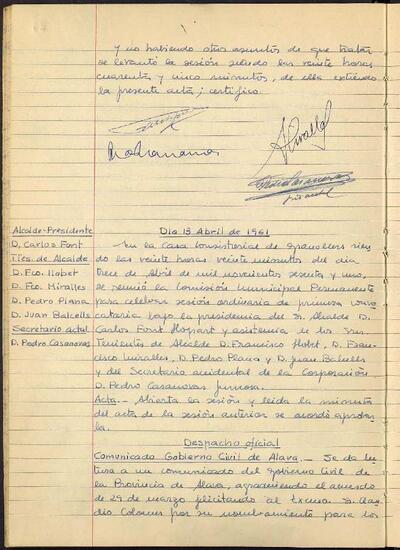 y no habiendo otros asuntos de que tratar
se levantó la sesión siendo las veinte horas
cuarenta y cinco minutos, de ella extiendo
la presente acta; certifico.
Alcalde-Presidente
D. Carlos Font
Ttes. de Alcalde
D. Fco. Llobet
D. Fco. Miralles
D. Pedro Plana
D. Juan Balcells
Secretario actal
D. Pedro Casanovas
Dia 13 Abril de 1961
En la Casa Consistorial de Granollers sien
do las veinte horas veinte minutos del dia
trece de Abril de mil novecientos sesenta y uno,
se reunió la Comisión Municipal Permanente
para celebrar sesión ordinaria de primera convo
catoria bajo la presidencia del Sr. Alcalde D.
Carlos Font Llopart y asistencia de los Sres.
Tenientes de Alcalde D. Francisco Llobet, D. Fran-
cisco Miralles, D. Pedro Plana y D. Juan Balcells
y del Secretario accidental de la Corporación
D. Pedro Casanovas
Acta.- Abierta la sesión y leida la minuta
del acta de la sesión anterior se acordó aprobar
la.
Despacho oficial
Comunicado Gobierno Civil de Alava.- Se da lec
tura a un comunicado del Gobierno Civil de
la Provincia de Alava, agradeciendo el acuerdo
de 29 de marzo felicitando al Excmo. Sr. Clau
dio Colomer por su nombramiento para los